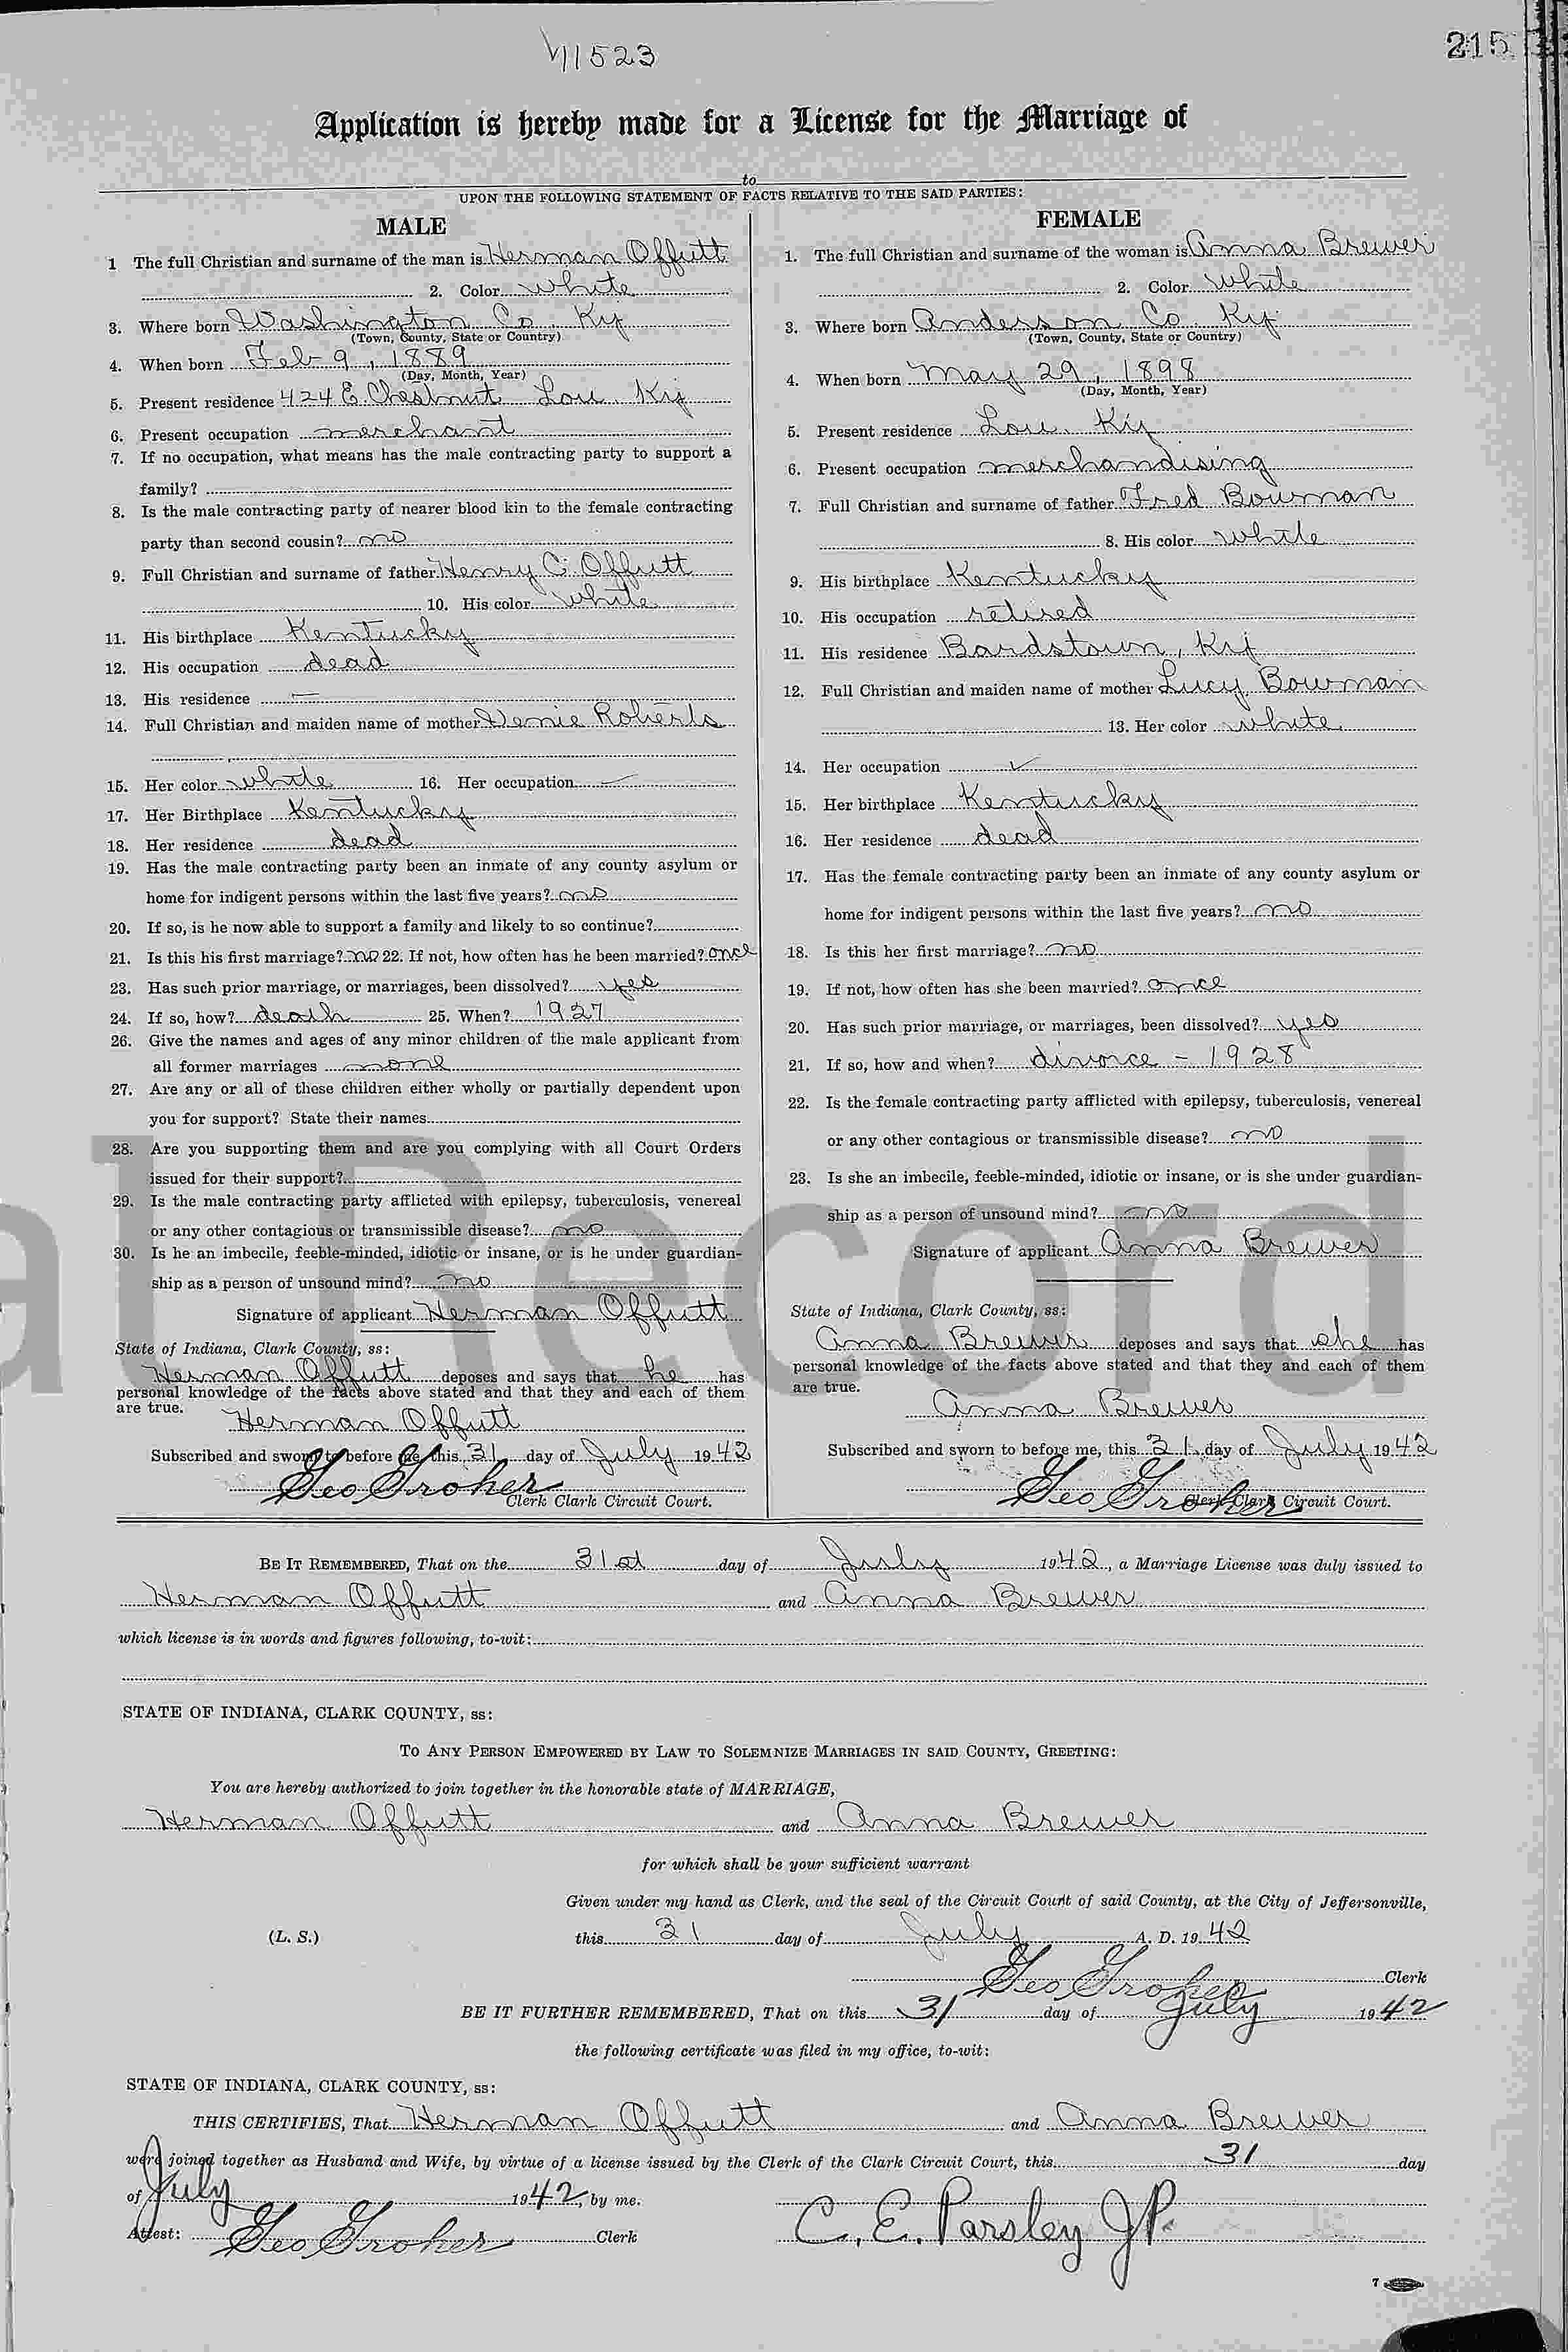 11523
215
Application is hereby made for a License for the Marriage of
to
UPON THE FOLLOWING STATEMENT OF FACTS RELATIVE TO THE SAID PARTIES:
MALE
1 The full Christian and surname of the man is Herman Offutt
2. Color white
3. Where born Washington Co., Ky
(Town, County, State or Country)
4. When born Feb 9, 1889
(Day, Month, Year)
5. Present residence 424 E Chestnut Lou. Ky
6. Present occupation merchant
7. If no occupation, what means has the male contracting party to support a
family?
8. Is the male contracting party of nearer blood kin to the female contracting
party than second cousin? no
9. Full Christian and surname of father Henry C. Offutt
10. His color white
11. His birthplace Kentucky
12. His occupation dead
13. His residence —
14. Full Christian and maiden name of mother Roberts
15. Her color white 16. Her occupation
17. Her Birthplace Kentucky
18. Her residence dead
19. Has the male contracting party been an inmate of any county asylum or
home for indigent persons within the last five years? no
20. If so, is he now able to support a family and likely to so continue?
21. Is this his first marriage? no 22. If not, how often has he been married? once
23. Has such prior marriage, or marriages, been dissolved? yes
24. If so, how? death 25. When? 1927
26. Give the names and ages of any minor children of the male applicant from
all former marriages none
27. Are any or all of these children either wholly or partially dependent upon
you for support? State their names
28. Are you supporting them and are you complying with all Court Orders
issued for their support?
29. Is the male contracting party afflicted with epilepsy, tuberculosis, venereal
or any other contagious or transmissible disease? no
30. Is he an imbecile, feeble-minded, idiotic or insane, or is he under guardian-
ship as a person of unsound mind? no
Signature of applicant Herman Offutt
State of Indiana, Clark County, ss:
Herman Offutt deposes and says that he has
personal knowledge of the facts above stated and that they and each of them
are true.
Herman Offutt
Subscribed and sworn to before me this 31 day of July 1942
Geo Groher
Clerk Clark Circuit Court.
FEMALE
1. The full Christian and surname of the woman is Anna Brewer
2. Color white
3. Where born Anderson Co. Ky
(Town, County, State or Country)
4. When born May 29, 1898
(Day, Month, Year)
5. Present residence Lou. Ky
6. Present occupation merchandising
7. Full Christian and surname of father Fred Bowman
8. His color white
9. His birthplace Kentucky
10. His occupation retired
11. His residence Bardstown, Ky
12. Full Christian and maiden name of mother Lucy Bowman
13. Her color white
14. Her occupation ✓
15. Her birthplace Kentucky
16. Her residence dead
17. Has the female contracting party been an inmate of any county asylum or
home for indigent persons within the last five years? no
18. Is this her first marriage? no
19. If not, how often has she been married? once
20. Has such prior marriage, or marriages, been dissolved? yes
21. If so, how and when? divorce - 1928
22. Is the female contracting party afflicted with epilepsy, tuberculosis, venereal
or any other contagious or transmissible disease? no
23. Is she an imbecile, feeble-minded, idiotic or insane, or is she under guardian-
ship as a person of unsound mind? no
Signature of applicant Anna Brewer
State of Indiana, Clark County, ss:
Anna Brewer deposes and says that she has
personal knowledge of the facts above stated and that they and each of them
are true.
Anna Brewer
Subscribed and sworn to before me, this 31 day of July 1942
Geo Groher
Clerk Clark Circuit Court.
al Record
BE IT REMEMBERED, That on the 31st day of July 1942, a Marriage License was duly issued to
Herman Offutt and Anna Brewer
which license is in words and figures following, to-wit:
STATE OF INDIANA, CLARK COUNTY, ss:
TO ANY PERSON EMPOWERED BY LAW TO SOLEMNIZE MARRIAGES IN SAID COUNTY, GREETING:
You are hereby authorized to join together in the honorable state of MARRIAGE,
Herman Offutt and Anna Brewer
for which shall be your sufficient warrant
Given under my hand as Clerk, and the seal of the Circuit Court of said County, at the City of Jeffersonville,
(L. S.) this 31 day of July A. D. 1942
Geo Groher Clerk
BE IT FURTHER REMEMBERED, That on this 31 day of July 1942
the following certificate was filed in my office, to-wit:
STATE OF INDIANA, CLARK COUNTY, ss:
THIS CERTIFIES, That Herman Offutt and Anna Brewer
were joined together as Husband and Wife, by virtue of a license issued by the Clerk of the Clark Circuit Court, this 31 day
of July 1942, by me.
C. E. Parsley JP.
Attest: Geo Groher Clerk
7